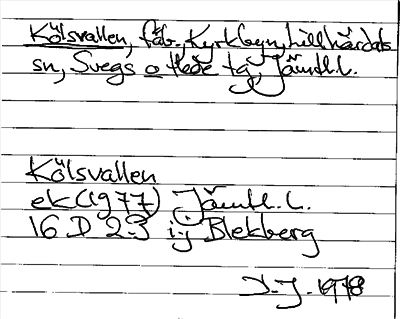 Kölsvallen, fäb. Kyrkbyn, Lillhärdals
sn, Svegs o Hede tg, Jämtl. l.
Kölsvallen
ek (1977) Jämtl. l.
16 D 2-3 i-j Blekberg
1978